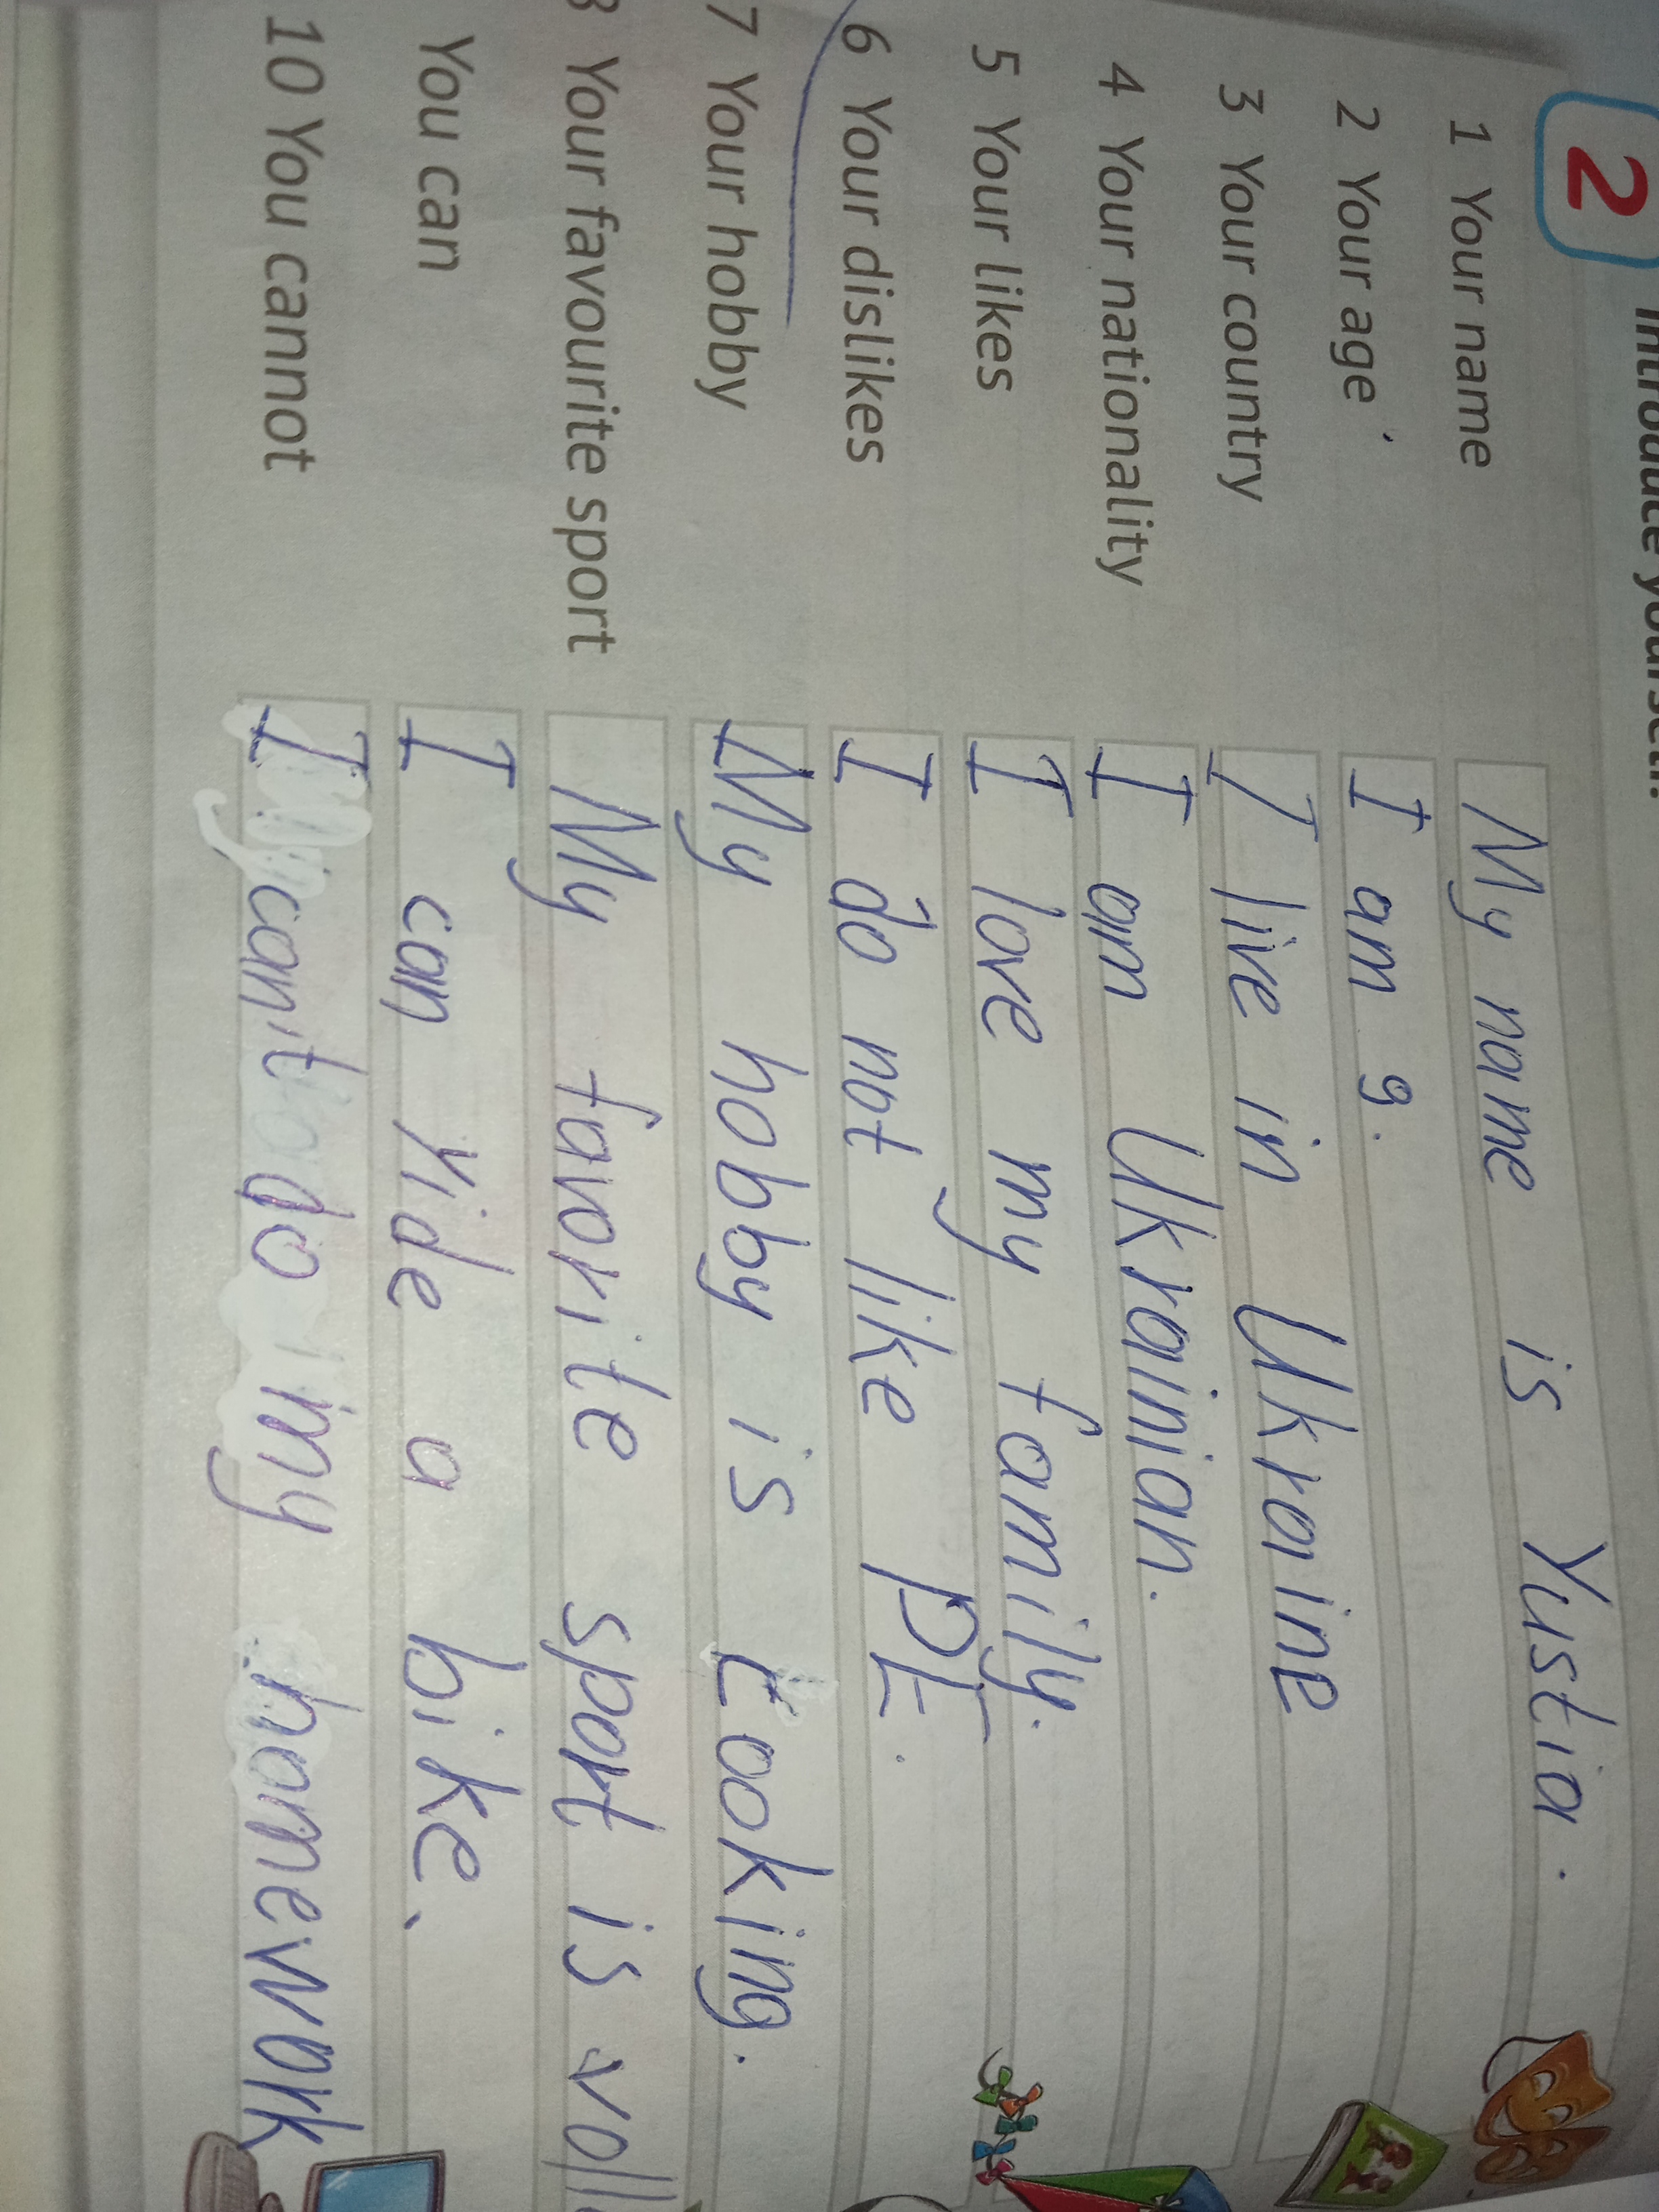 2 Introduce yourself.
1 Your name My name is Yustia.
2 Your age I am 9.
3 Your country I live in Ukraine
4 Your nationality I am Ukrainian.
5 Your likes I love my family.
6 Your dislikes I do not like PE.
7 Your hobby My hobby is cooking.
8 Your favourite sport My favorite sport is voll
You can I can ride a bike.
10 You cannot I can't do my homework